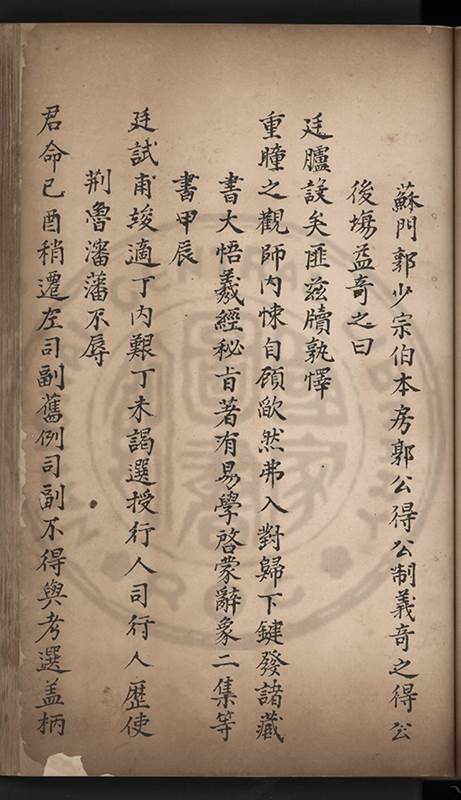 蘇門郭少宗伯本房郭公得公制義奇之得公
後塲益奇之曰
廷臚設矣匪茲牘孰懌
重瞳之觀師內悚自顧歉然弗入對歸下鍵發諸藏
書大悟羲經秘旨著有易學啓蒙辭象二集等
書甲辰
廷試甫竣適丁內艱丁未謁選授行人司行人歷使
荆魯瀋藩不辱
君命己酉稍遷左司副舊例司副不得與考選盖柄